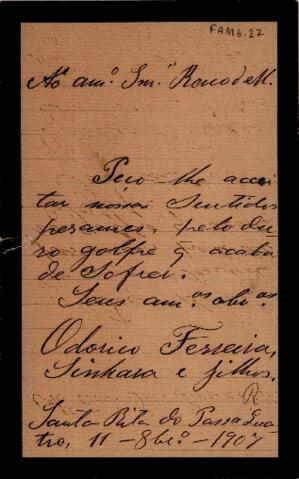 FAM6.27
Ao amº. Snr. Roco de M.
Peço-lhe accei
tar nossos sentidos
pezames, pelo du
ro golpe q̃ acaba
de sofrer.
Seus am.ºs obr.ºs
Odorico Ferreira,
Sinhara e filhos.
Santa Rita do Passa Qua
tro, 11-8brº-1907